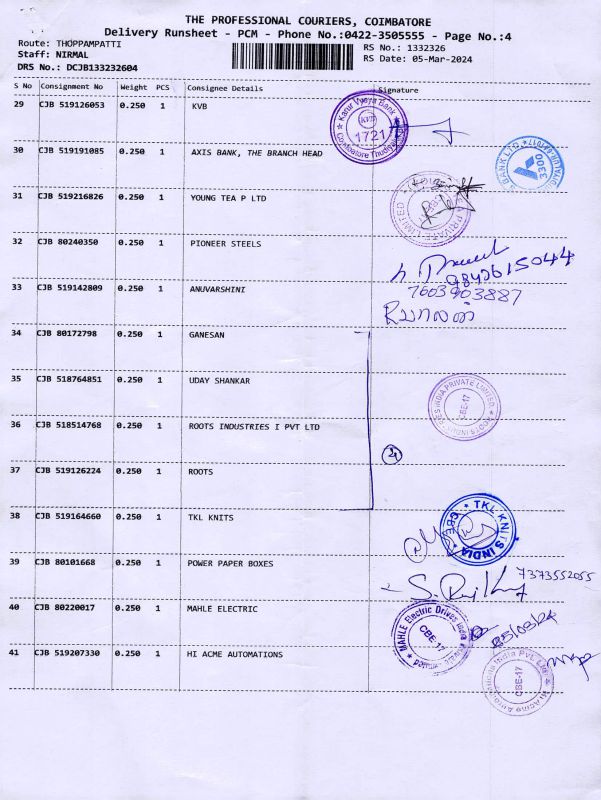 THE PROFESSIONAL COURIERS, COIMBATORE
Delivery Runsheet - PCM - Phone No.:0422-3505555 - Page No.:4
Route: THOPPAMPATTI
RS No.: 1332326
Staff: NIRMAL
RS Date: 05-Mar-2024
DRS No.: DCJB133232604
S No Consignment No Weight PCS Consignee Details Signature
29 CJB 519126053 0.250 1 KVB
Karur Vysya Bank
KVB
1721
30 CJB 519191085 0.250 1 AXIS BANK, THE BRANCH HEAD
BANK LTD.
3300
31 CJB 519216826 0.250 1 YOUNG TEA P LTD
PRIVATE LIMITED
32 CJB 80240350 0.250 1 PIONEER STEELS
9842615044
33 CJB 519142809 0.250 1 ANUVARSHINI
7603903887
34 CJB 80172798 0.250 1 GANESAN
35 CJB 518764851 0.250 1 UDAY SHANKAR
INDIA PRIVATE LIMITED
CBE-17
ROOTS INDUS
36 CJB 518514768 0.250 1 ROOTS INDUSTRIES I PVT LTD
37 CJB 519126224 0.250 1 ROOTS
38 CJB 519164660 0.250 1 TKL KNITS
TKL KNITS INDIA
CBE
39 CJB 80101668 0.250 1 POWER PAPER BOXES
7373552055
40 CJB 80220017 0.250 1 MAHLE ELECTRIC
MAHLE Electric Drives India Private Limited
CBE-17
05/03/24
41 CJB 519207330 0.250 1 HI ACME AUTOMATIONS
Hi Acme Automations India Pvt Ltd
CBE-17